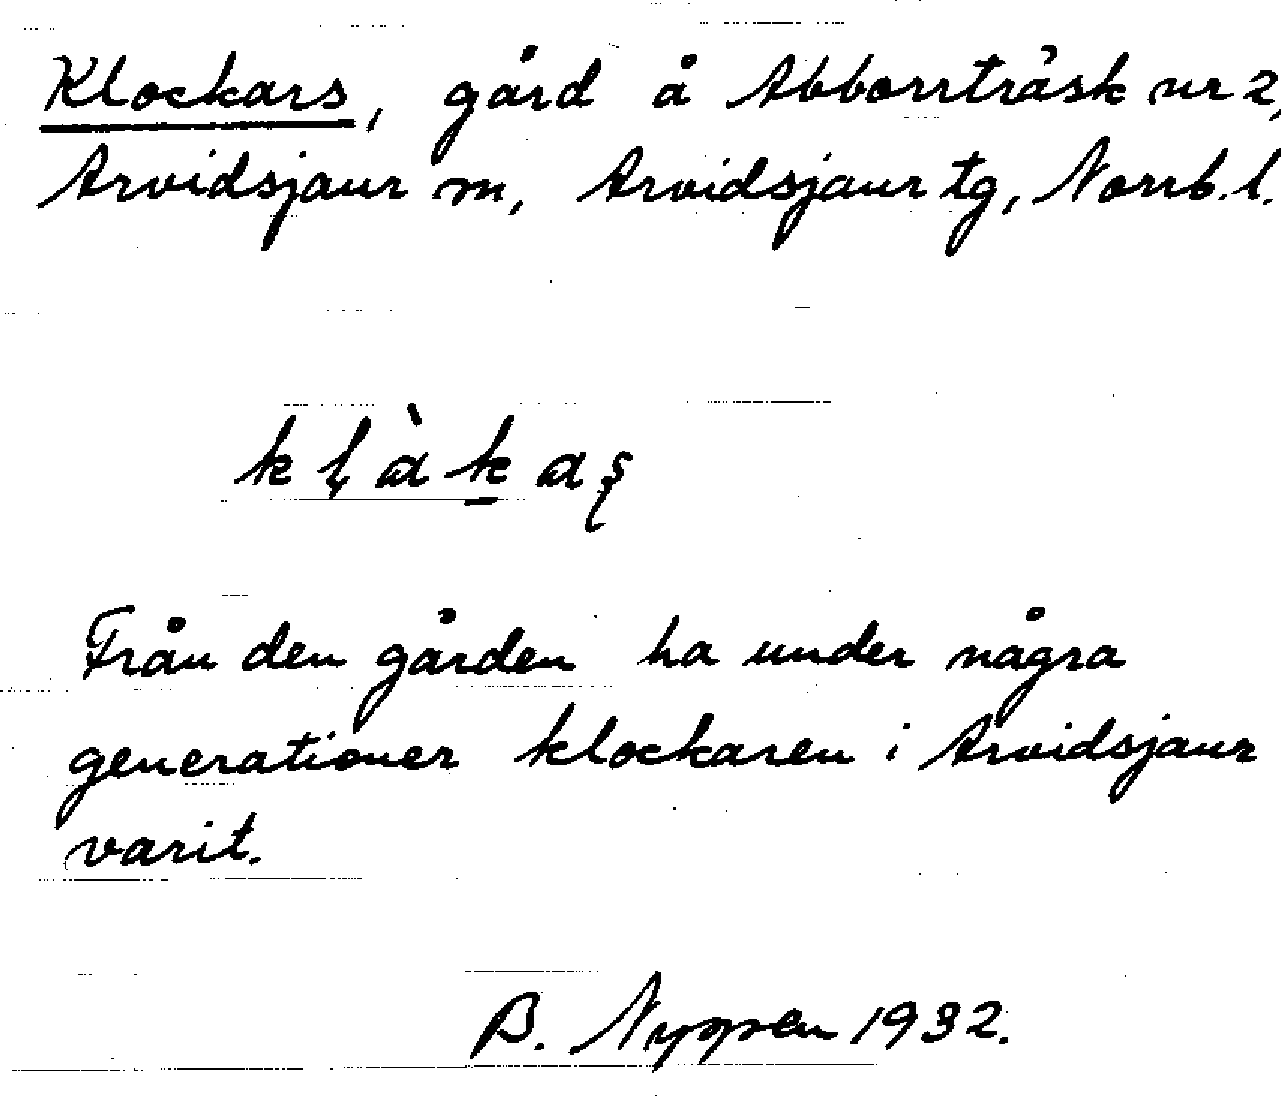 Klockars, gård å Abborrträsk nr 2,
Arvidsjaur m, Arvidsjaur tg, Norrb. l.
Från den gården ha under några
generationer klockaren i Arvidsjaur
varit.
B. Nyggen 1932.